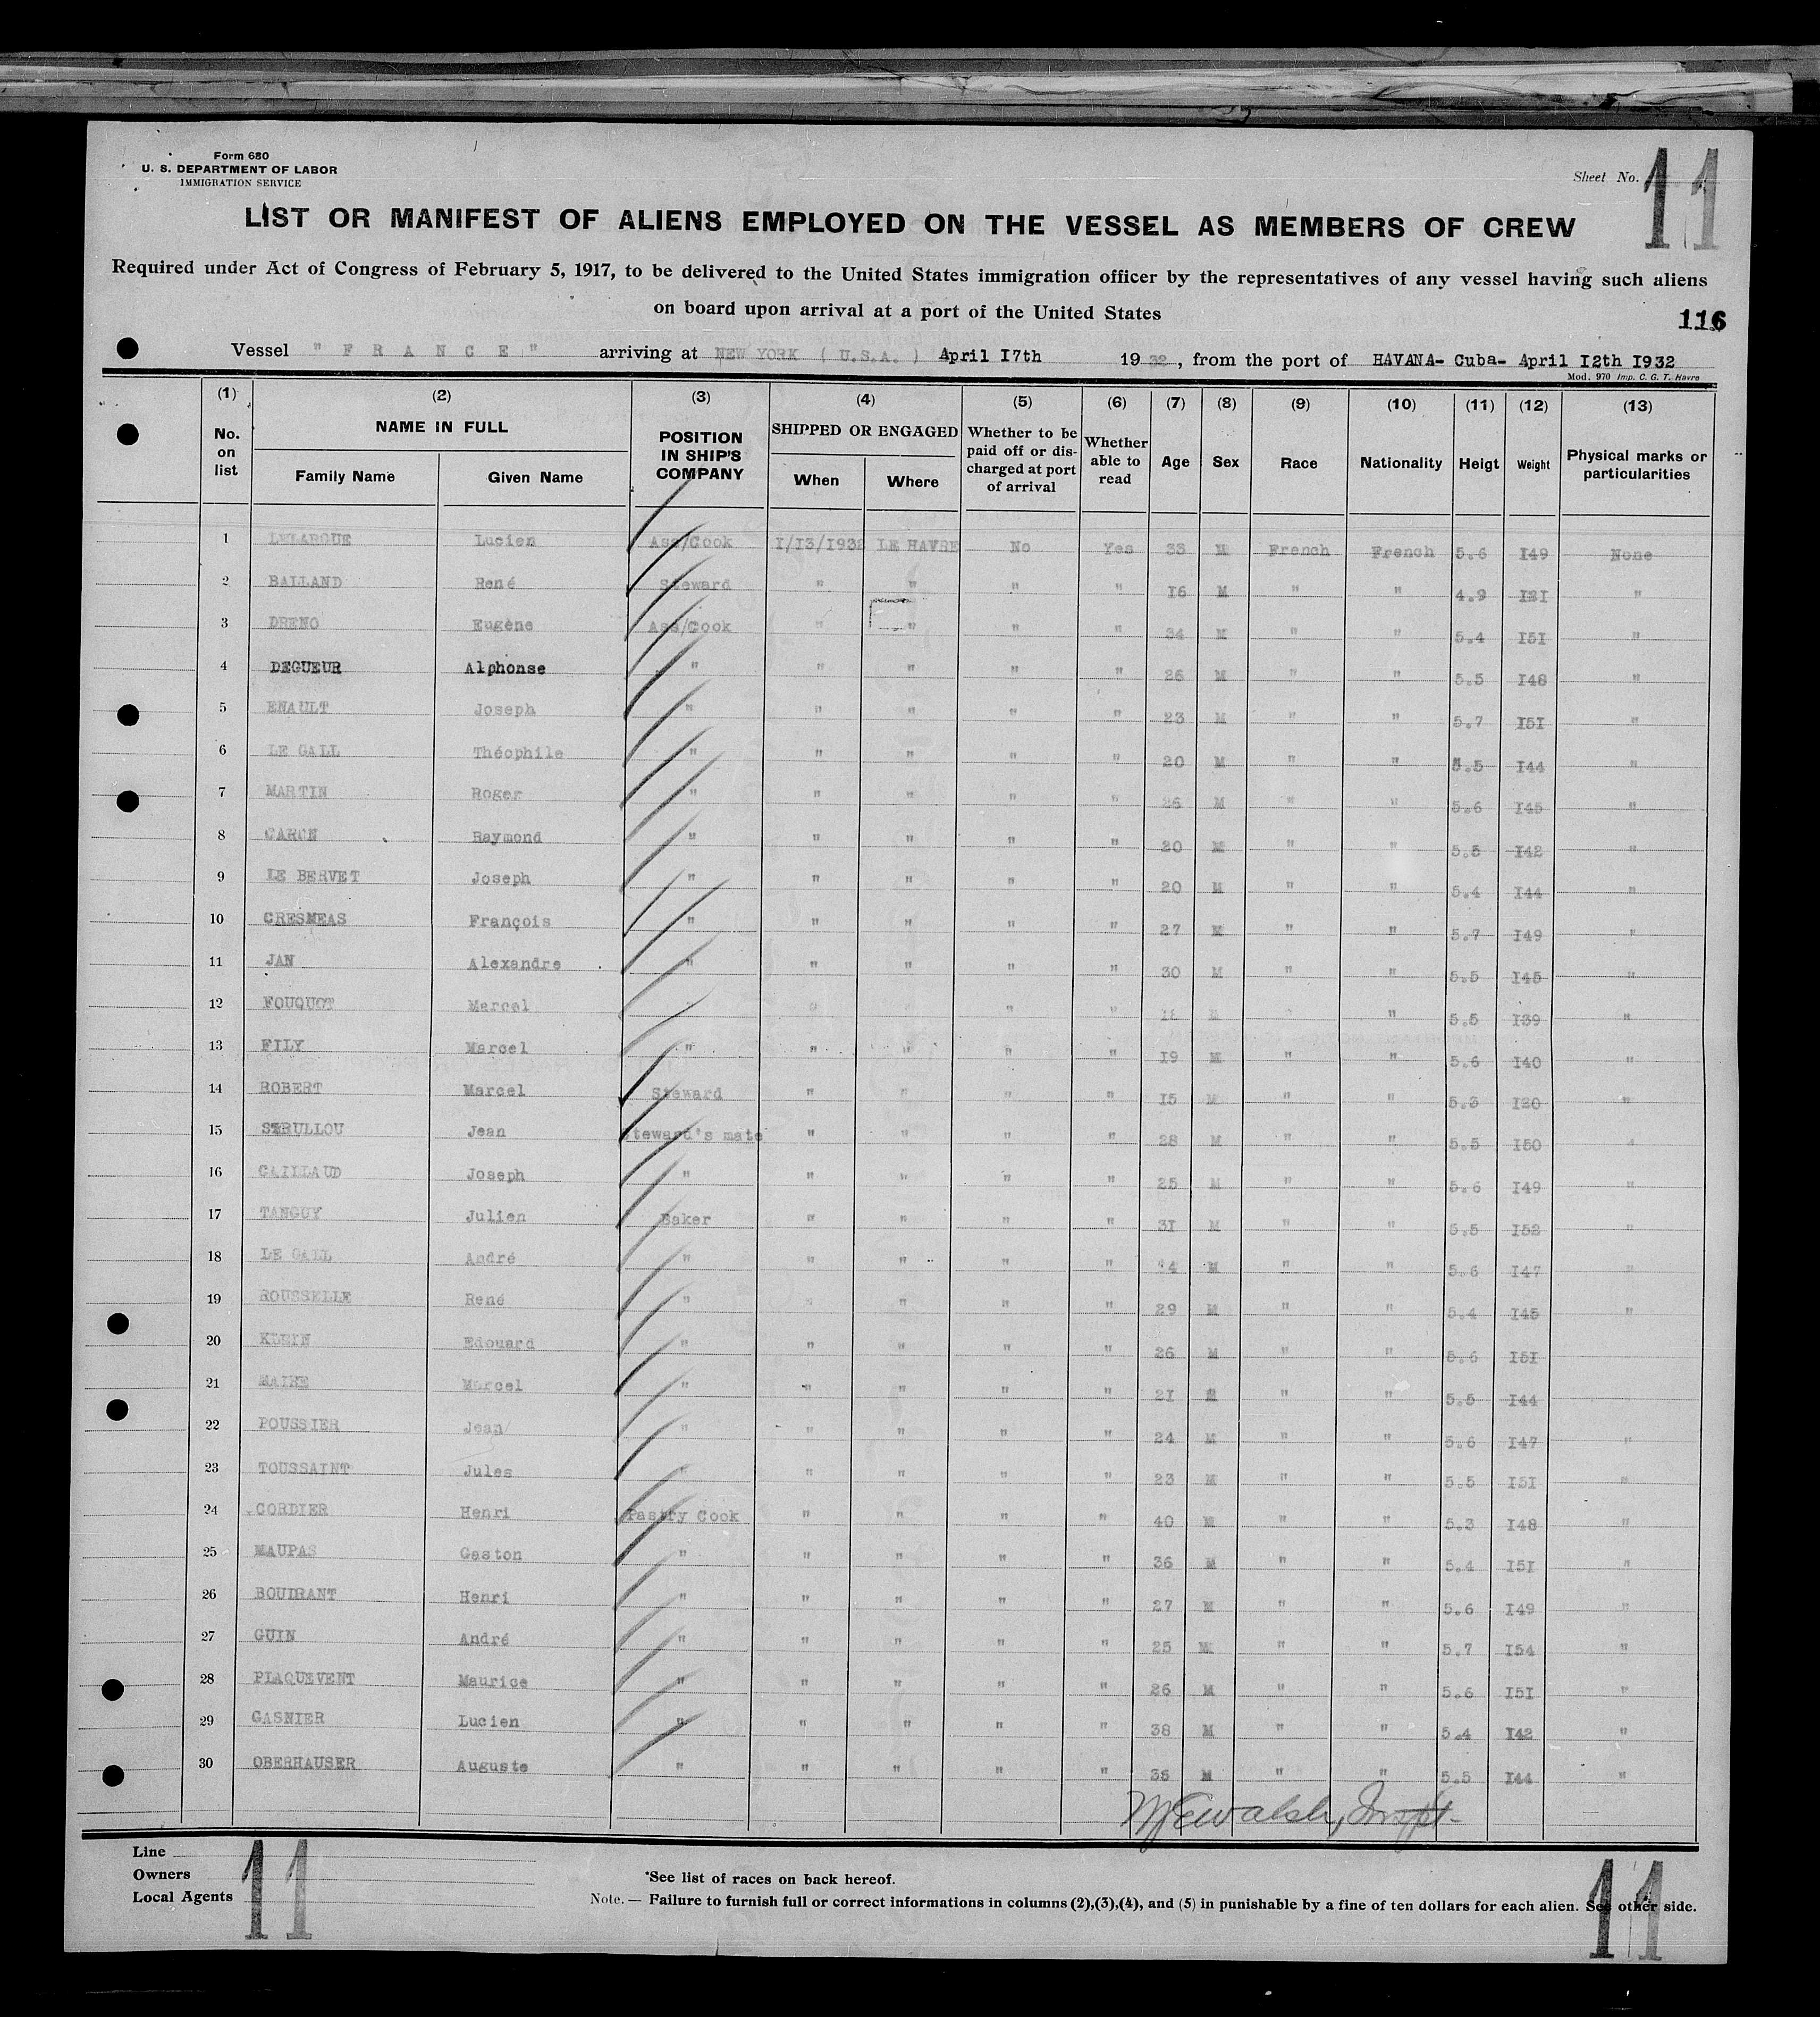 Form 680
U. S. DEPARTMENT OF LABOR
IMMIGRATION SERVICE
Sheet No. 11
LIST OR MANIFEST OF ALIENS EMPLOYED ON THE VESSEL AS MEMBERS OF CREW
Required under Act of Congress of February 5, 1917, to be delivered to the United States immigration officer by the representatives of any vessel having such aliens
on board upon arrival at a port of the United States
116
Vessel "FRANCE" arriving at NEW YORK (U.S.A.) April I7th 1932, from the port of HAVANA- Cuba- April I2th I932
Mod. 970 Imp. C. G. T. Havre
(1) (2) (3) (4) (5) (6) (7) (8) (9) (10) (11) (12) (13)
No. on list NAME IN FULL Family Name Given Name POSITION IN SHIP'S COMPANY SHIPPED OR ENGAGED When Where Whether to be paid off or discharged at port of arrival Whether able to read Age Sex Race Nationality Heigt Weight Physical marks or particularities
1 LELARGUE Lucien Ass/Cook I/I3/I932 LE HAVRE No Yes 33 M French French 5.6 I49 None
2 BALLAND René Steward " " " " I6 M " " 4.9 I2I "
3 DRENO Eugène Ass/Cook " " " " 34 M " " 5.4 I5I "
4 DEGUEUR Alphonse " " " " " 26 M " " 5.5 I48 "
5 ENAULT Joseph " " " " " 23 M " " 5.7 I5I "
6 LE GALL Théophile " " " " " 20 M " " 5.5 I44 "
7 MARTIN Roger " " " " " 26 M " " 5.6 I45 "
8 CARON Raymond " " " " " 20 M " " 5.5 I42 "
9 LE BERVET Joseph " " " " " 20 M " " 5.4 I44 "
10 CRESMEAS François " " " " " 27 M " " 5.7 I49 "
11 JAN Alexandre " " " " " 30 M " " 5.5 I45 "
12 FOUQUOT Marcel " " " I8 M " 5.5 I39 "
13 FILY Marcel " " " " " I9 M " " 5.6 I40 "
14 ROBERT Marcel Steward " " " " I5 M " " 5.3 I20 "
15 STRULLOU Jean Steward's mate " " " " 28 M " " 5.5 I50 "
16 CAILLAUD Joseph " " " " " 25 M " " 5.6 I49 "
17 TANGUY Julien Baker " " " " 3I M " " 5.5 I52 "
18 LE GALL André " " " " " M " " 5.6 I47 "
19 ROUSSELLE René " " " " " 29 M " " 5.4 I45 "
20 KLEIN Edouard " " " " " 26 M " " 5.6 I5I
21 MAIRE Marcel " " " " " 2I M " " 5.5 I44
22 POUSSIER Jean " " " " " 24 M " " 5.6 I47 "
23 TOUSSAINT Jules " " " " " 23 M " " 5.5 I5I "
24 CORDIER Henri Pastry Cook " " " " 40 M " " 5.3 I48 "
25 MAUPAS Gaston " " " " " 36 M " " 5.4 I5I "
26 BOUDRANT Henri " " " " " 27 M " " 5.6 I49 "
27 GUIN André " " " " " 25 M " " 5.7 I54 "
28 PLAQUEVENT Maurice " " " " " 26 M " " 5.6 I5I "
29 GASNIER Lucien " " " " " 38 M " " 5.4 I42 "
30 OBERHAUSER Auguste " " " " " 35 M " " 5.5 I44 "
MEWalsh, Inspt.
Line
Owners
Local Agents
11
*See list of races on back hereof.
Note. — Failure to furnish full or correct informations in columns (2),(3),(4), and (5) in punishable by a fine of ten dollars for each alien. See other side.
11